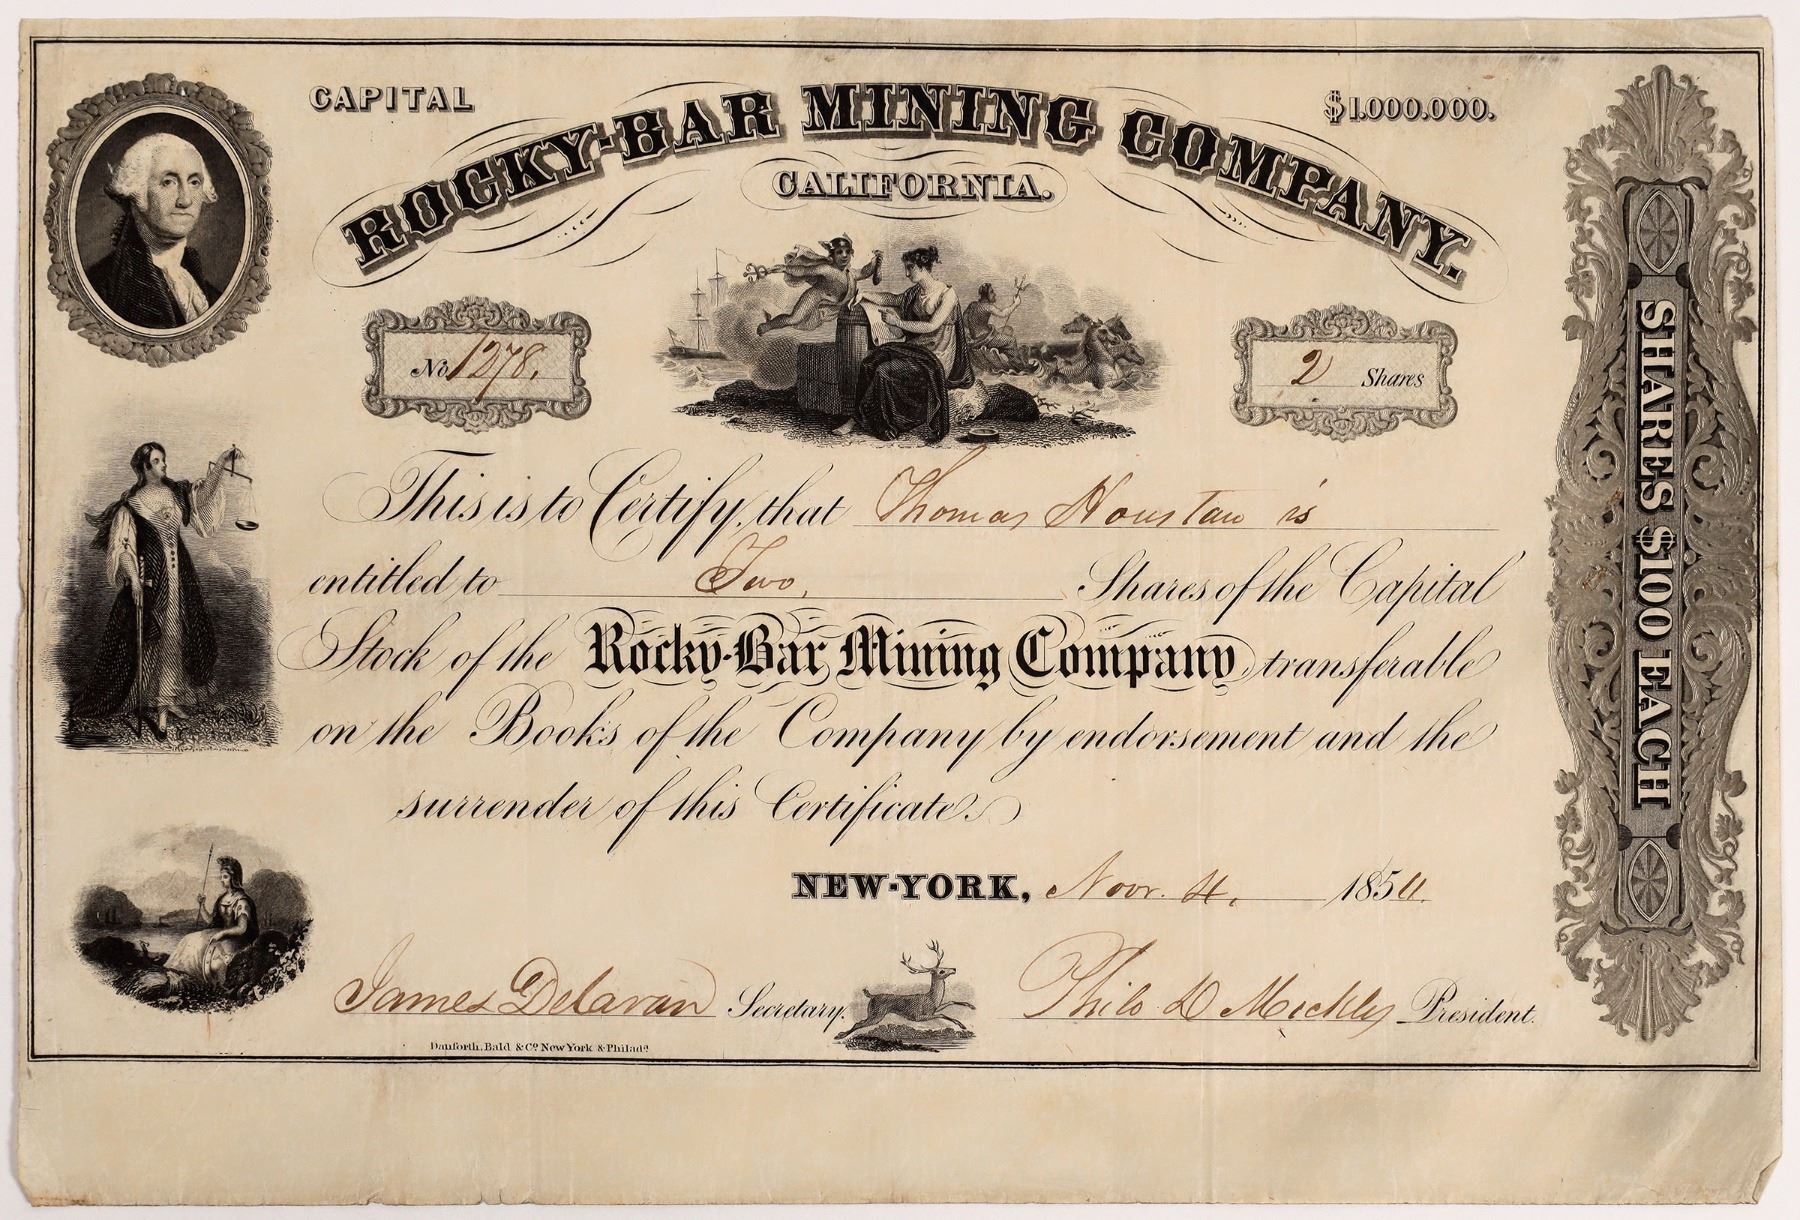 CAPITAL
$1.000.000.
ROCKY-BAR MINING COMPANY.
CALIFORNIA.
No 1278.
2 Shares
This is to Certify, that Thomas Houstan is
entitled to Two, Shares of the Capital
Stock of the Rocky-Bar Mining Company, transferable
on the Books of the Company by endorsement and the
surrender of this Certificate.
NEW-YORK, Novr. 4, 1854.
James Delavan Secretary.
Philo D Mickles President.
Danforth, Bald & Co. New York & Philada.
SHARES $100 EACH